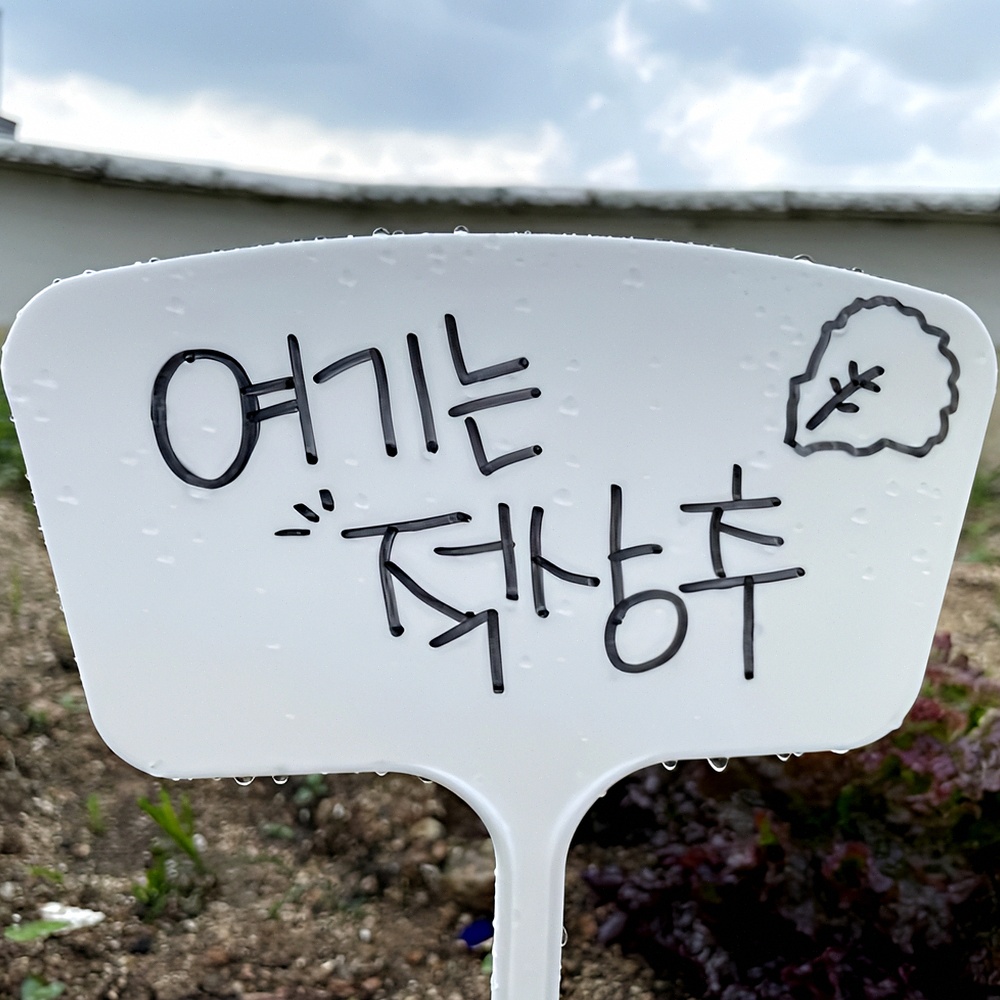 여기는
적상추